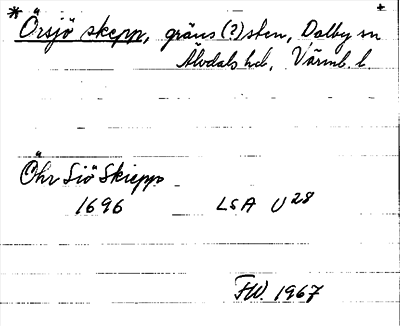 * Örsjö skepp, gräns(?)sten, Dalby sn +
Älvdals hd, Värml. l.
Öhr Siö Skiepp
1696 LSA U28
FW. 1967